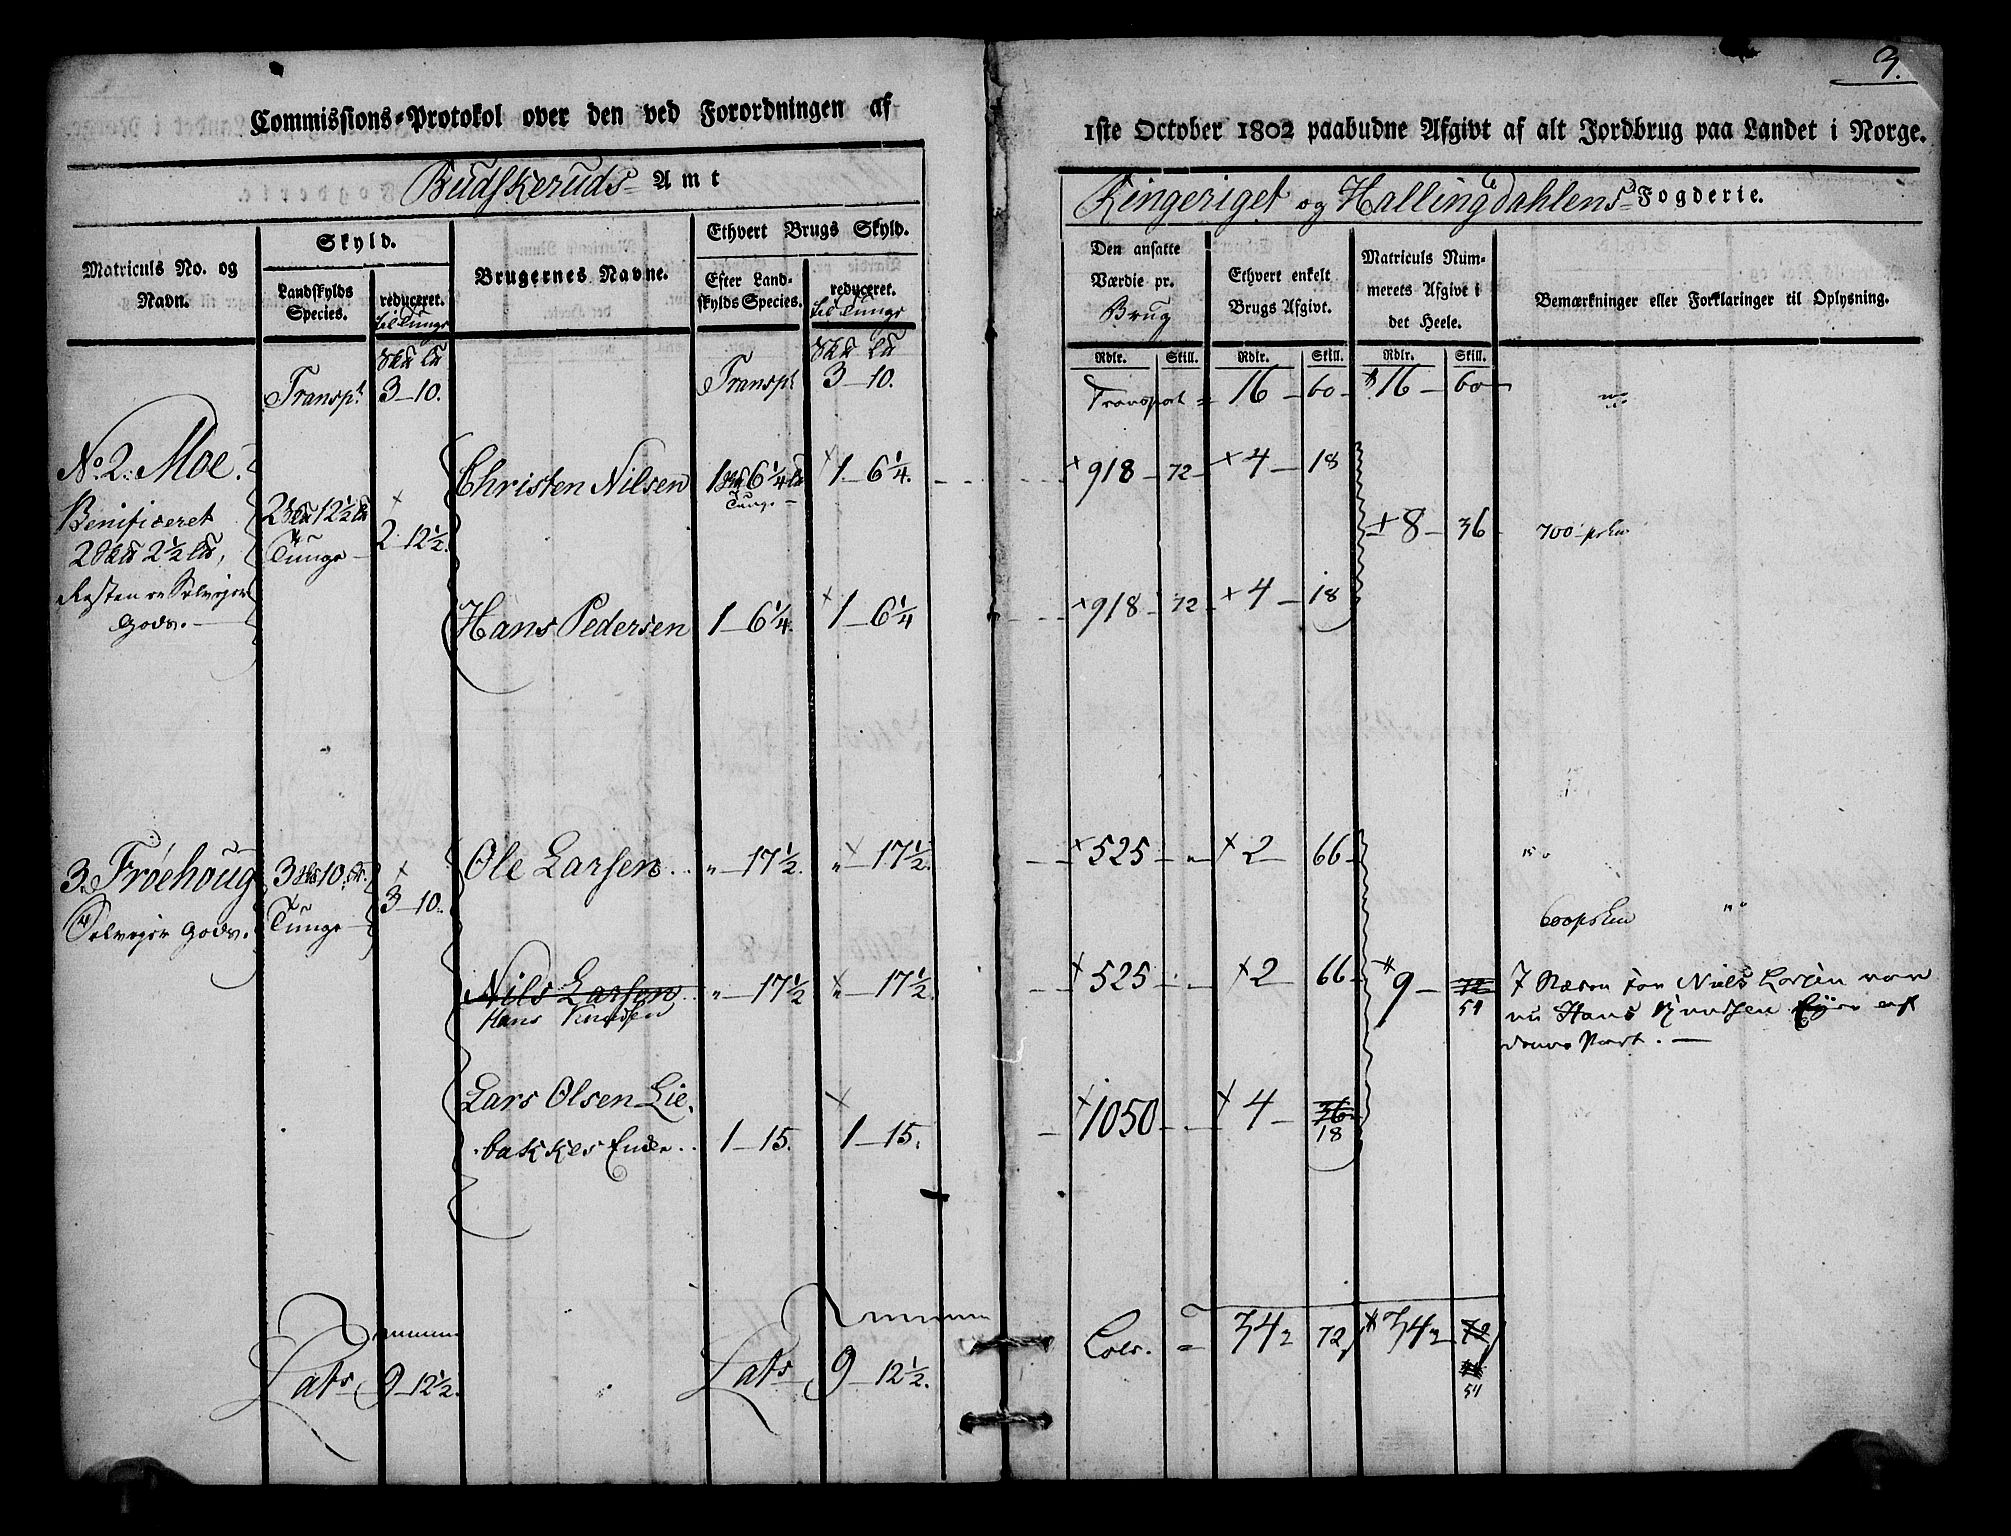 3.
Commissions-Protokol over den ved Forordningen af
1ste October 1802 paabudne Afgivt af alt Jordbrug paa Landet i Norge.
Budskeruds Amt
Ringeriget og Hallingdahlens Fogderie.
Matriculs No. og Navn.
Skyld.
Landskylds Species.
reduceret. til Tunge
Brugernes Navne.
Ethvert Brugs Skyld.
Efter Landskylds Species.
reduceret. til Tunge
Den ansatte Værdie pr. Brug
Ethvert enkelt Brugs Afgivt.
Matriculs Nummerets Afgivt i det Heele.
Bemærkninger eller Forklaringer til Oplysning.
Rdlr. Skill. Rdlr. Skill. Rdlr. Skill.
Transpt 3-10. Transpt 3-10. Transport = 16-60- 16-60
No 2. Moe. Christen Nilsen 1 6¼ Tunge 1-6¼. 918-72 4-18
Benificeret 2 12½ Tunge 2-12½. 8-36
2 2½
Resten er Selvejer
Gods.
Hans Pedersen 1-6¼. 1-6¼ 918-72 4-18
3. Frøehoug 3 10. Tunge 3-10. Ole Larsen. "-17½. "-17½. 525-" 2-66
Selvejer Gods.
Nils Larsen "-17½ "-17½. 525 2-66 9- 54
Hans Knudsen
7 Næven for Niels Larsen var
nu Hans Knudsen Ejer af
denne Part.
Lars Olsen Lie-
bakkes Enke. 1-15. 1-15. 1050 4- 36
18
Lats 9-12½. Lats 9-12½. 34 72 34 72
54